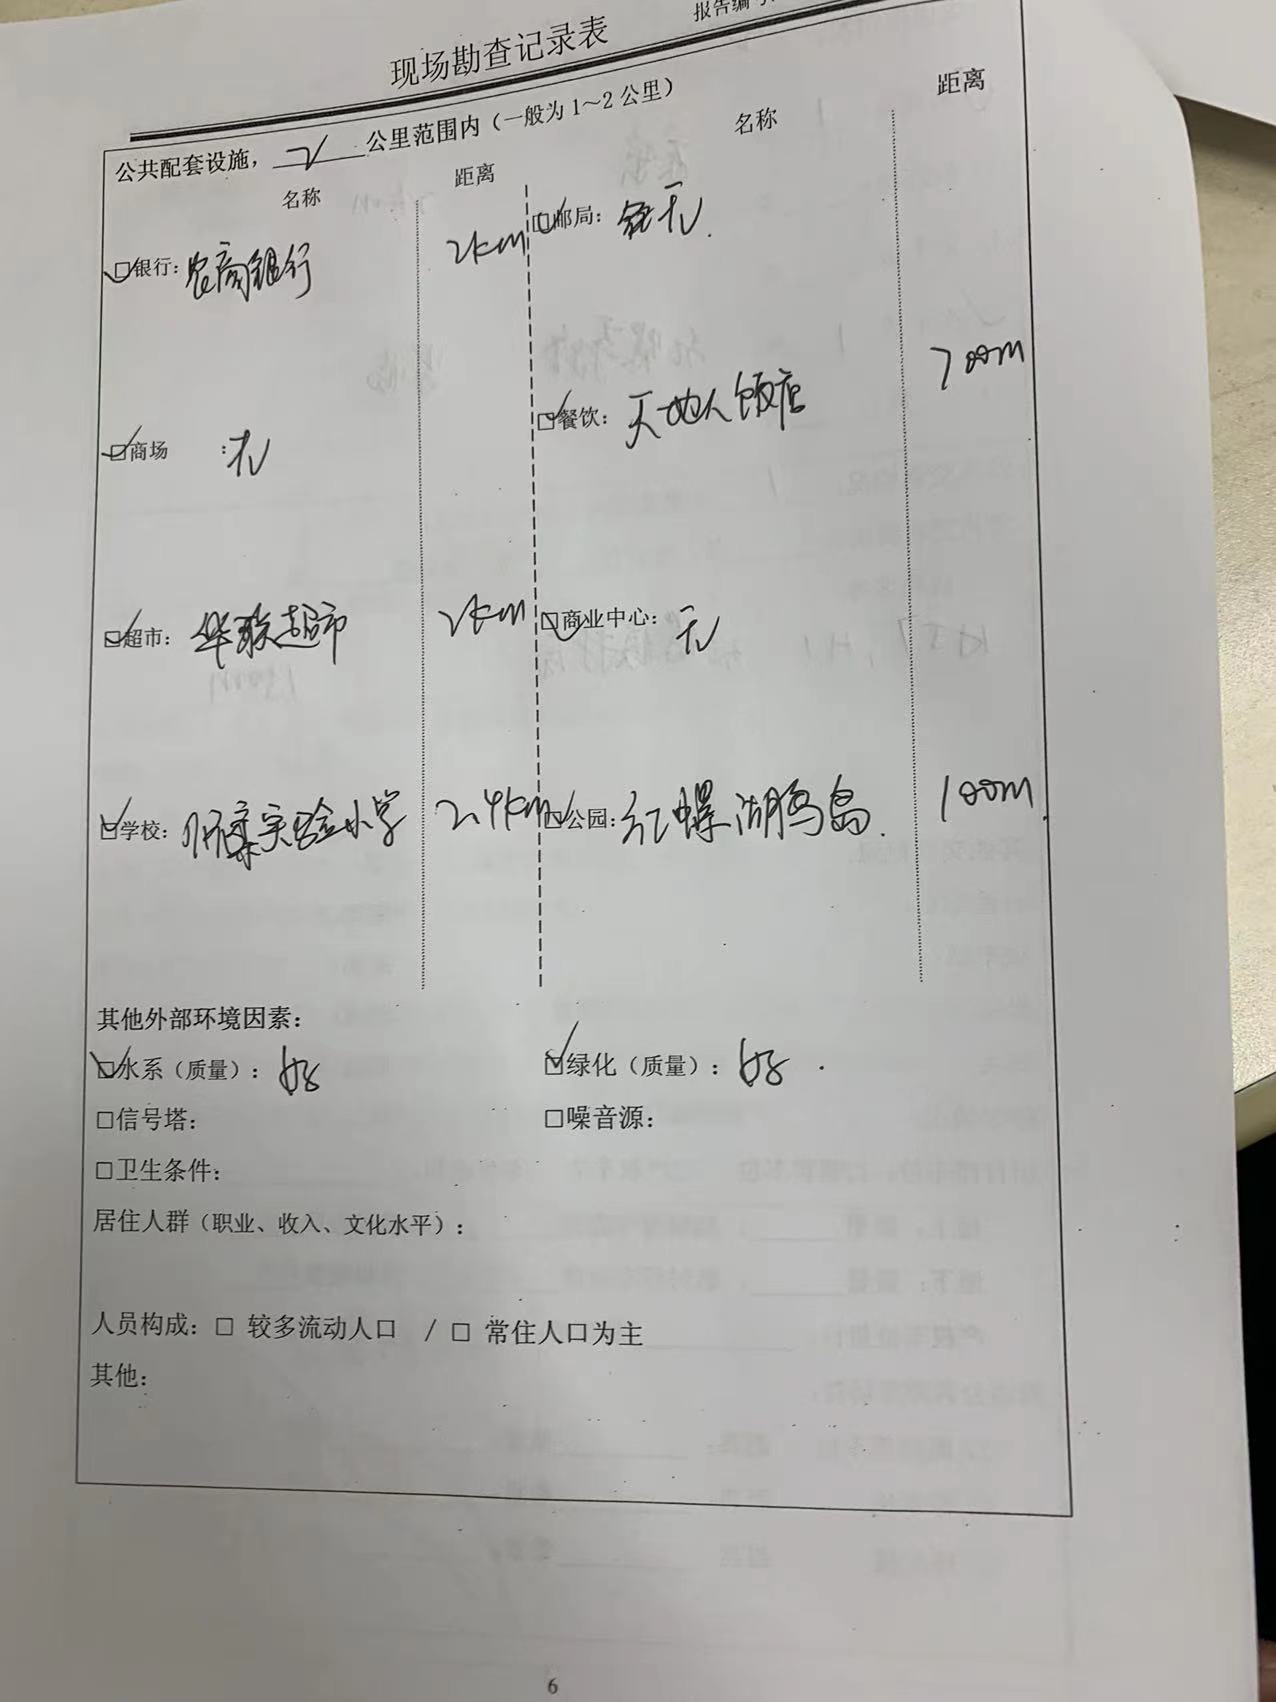 报告编号
现场勘查记录表
公共配套设施，2公里范围内（一般为1～2公里）
名称 距离 名称 距离
☑银行：农商银行 2km ☑邮局：无.
☑商场 ：无 ☑餐饮：天地人饭店 700m
☑超市：华联超市 2km ☑商业中心：无
☑学校：怀柔实验小学 2.4km ☑公园：红螺湖鸟岛. 100m
其他外部环境因素：
☑水系（质量）：好 ☑绿化（质量）：好.
□信号塔： □噪音源：
□卫生条件：
居住人群（职业、收入、文化水平）：
人员构成：□ 较多流动人口 / □ 常住人口为主
其他：
6